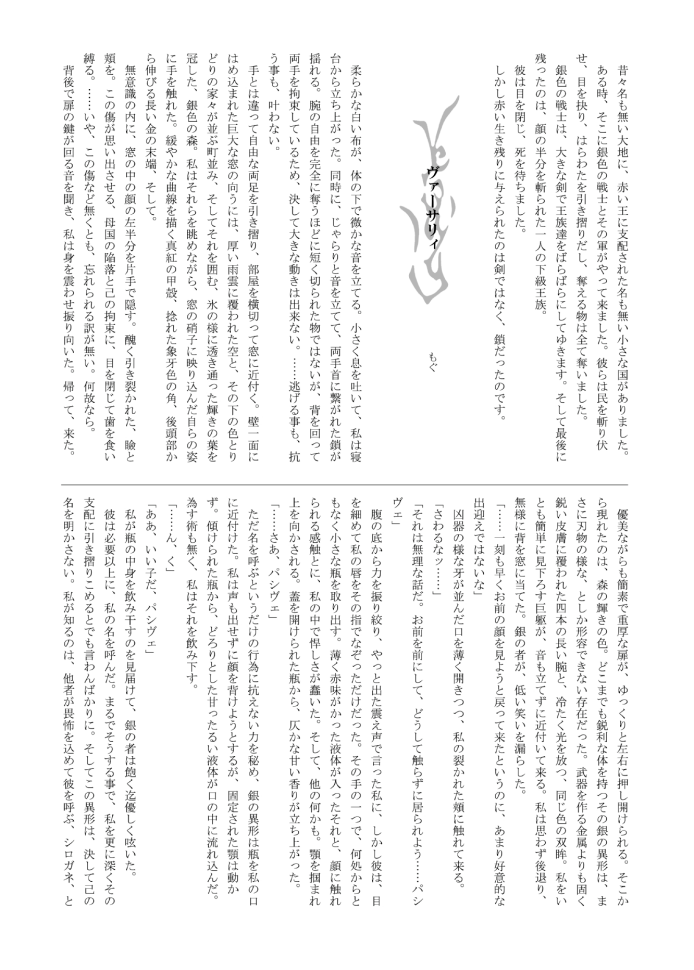 昔々名も無い大地に、赤い王に支配された名も無い小さな国がありました。
ある時、そこに銀色の戦士とその軍がやって来ました。彼らは民を斬り伏
せ、目を抉り、はらわたを引き摺りだし、奪える物は全て奪いました。
銀色の戦士は、大きな剣で王族達をばらばらにしてゆきます。そして最後に
残ったのは、顔の半分を斬られた一人の下級王族。
彼は目を閉じ、死を待ちました。
しかし赤い生き残りに与えられたのは剣ではなく、鎖だったのです。
ヴァーサリィ
もぐ
柔らかな白い布が、体の下で微かな音を立てる。小さく息を吐いて、私は寝
台から立ち上がった。同時に、じゃらりと音を立てて、両手首に繋がれた鎖が
揺れる。腕の自由を完全に奪うほどに短く切られた物ではないが、背を回って
両手を拘束しているため、決して大きな動きは出来ない。……逃げる事も、抗
う事も、叶わない。
手とは違って自由な両足を引き摺り、部屋を横切って窓に近付く。壁一面に
はめ込まれた巨大な窓の向うには、厚い雨雲に覆われた空と、その下の色とり
どりの家々が並ぶ町並み、そしてそれを囲む、氷の様に透き通った輝きの葉を
冠した、銀色の森。私はそれらを眺めながら、窓の硝子に映り込んだ自らの姿
に手を触れた。緩やかな曲線を描く真紅の甲殻、捻れた象牙色の角、後頭部か
ら伸びる長い金の末端、そして。
無意識の内に、窓の中の顔の左半分を片手で隠す。醜く引き裂かれた、瞼と
頬を。この傷が思い出させる、母国の陥落と己の拘束に、目を閉じて歯を食い
縛る。……いや、この傷など無くとも、忘れられる訳が無い。何故なら。
背後で扉の鍵が回る音を聞き、私は身を震わせ振り向いた。帰って、来た。
優美ながらも簡素で重厚な扉が、ゆっくりと左右に押し開けられる。そこか
ら現れたのは、森の輝きの色。どこまでも鋭利な体を持つその銀の異形は、ま
さに刃物の様な、としか形容できない存在だった。武器を作る金属よりも固く
鋭い皮膚に覆われた四本の長い腕と、冷たく光を放つ、同じ色の双眸。私をい
とも簡単に見下ろす巨躯が、音も立てずに近付いて来る。私は思わず後退り、
無様に背を窓に当てた。銀の者が、低い笑いを漏らした。
「……一刻も早くお前の顔を見ようと戻って来たというのに、あまり好意的な
出迎えではないな」
凶器の様な牙が並んだ口を薄く開きつつ、私の裂かれた頬に触れて来る。
「さわるなッ……」
「それは無理な話だ。お前を前にして、どうして触らずに居られよう……パシ
ヴェ」
腹の底から力を振り絞り、やっと出た震え声で言った私に、しかし彼は、目
を細めて私の唇をその指でなぞっただけだった。その手の一つで、何処からと
もなく小さな瓶を取り出す。薄く赤味がかった液体が入ったそれと、顔に触れ
られる感触とに、私の中で悍しさが蠢いた。そして、他の何かも。顎を掴まれ
上を向かされる。蓋を開けられた瓶から、仄かな甘い香りが立ち上がった。
「……さあ、パシヴェ」
ただ名を呼ぶというだけの行為に抗えない力を秘め、銀の異形は瓶を私の口
に近付けた。私は声も出せずに顔を背けようとするが、固定された顎は動か
ず。傾けられた瓶から、どろりとした甘ったるい液体が口の中に流れ込んだ。
為す術も無く、私はそれを飲み下す。
「……ん、く」
「ああ、いい子だ、パシヴェ」
私が瓶の中身を飲み干すのを見届けて、銀の者は飽く迄優しく呟いた。
彼は必要以上に、私の名を呼んだ。まるでそうする事で、私を更に深くその
支配に引き摺りこめるとでも言わんばかりに。そしてこの異形は、決して己の
名を明かさない。私が知るのは、他者が畏怖を込めて彼を呼ぶ、シロガネ、と